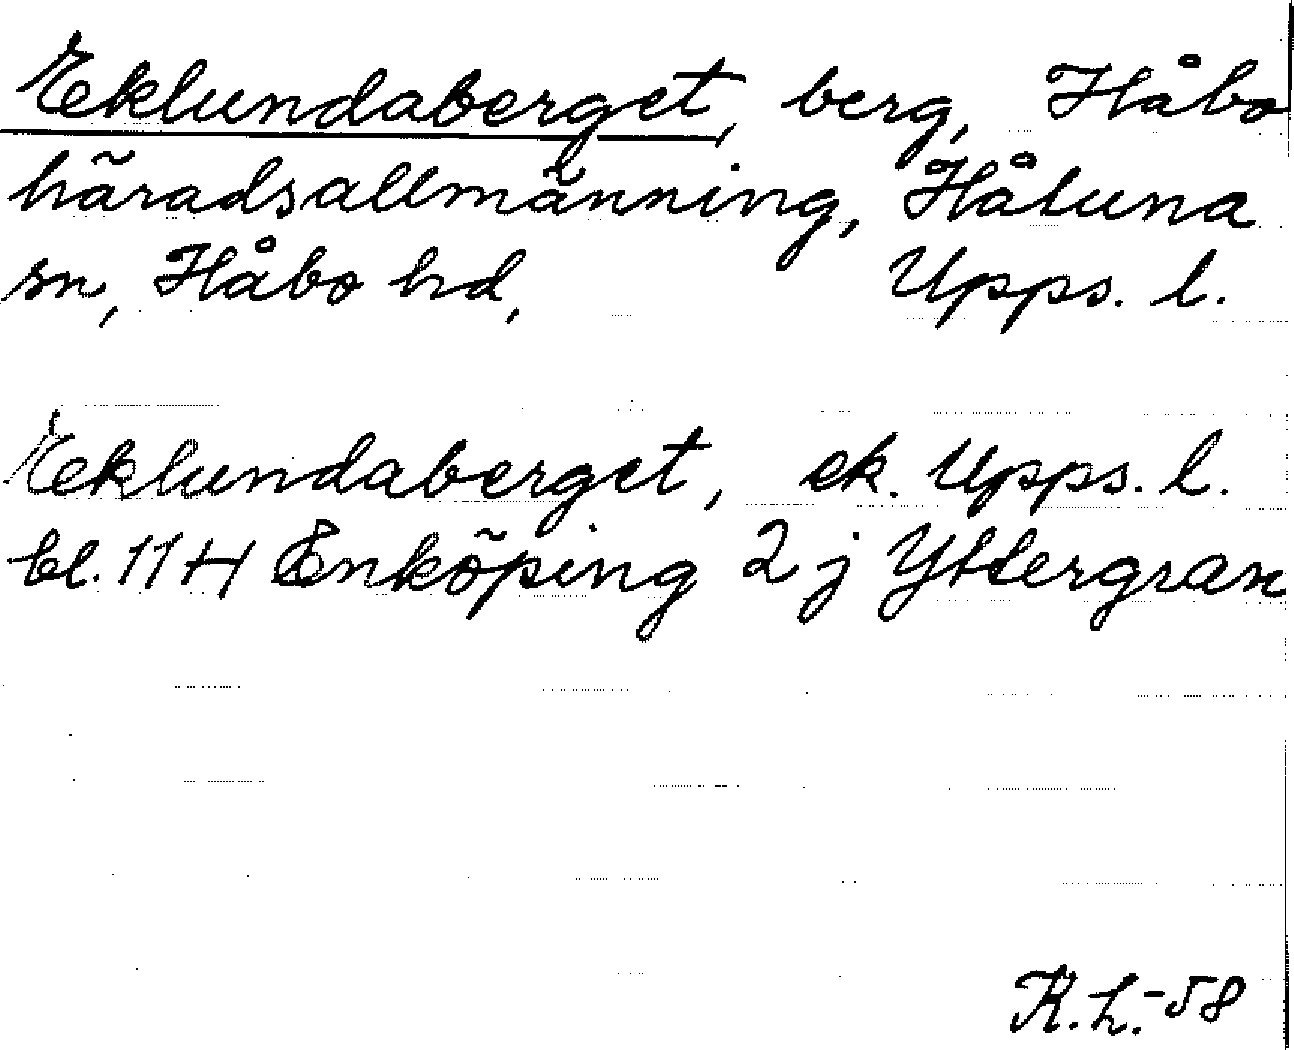 Eklundaberget, berg, Håbo
häradsallmänning, Håtuna
sn, Håbo hd, Upps. l.
Eklundaberget, ek. Upps. l.
bl. 11 H Enköping 2 j Yttergran
K. h. -58